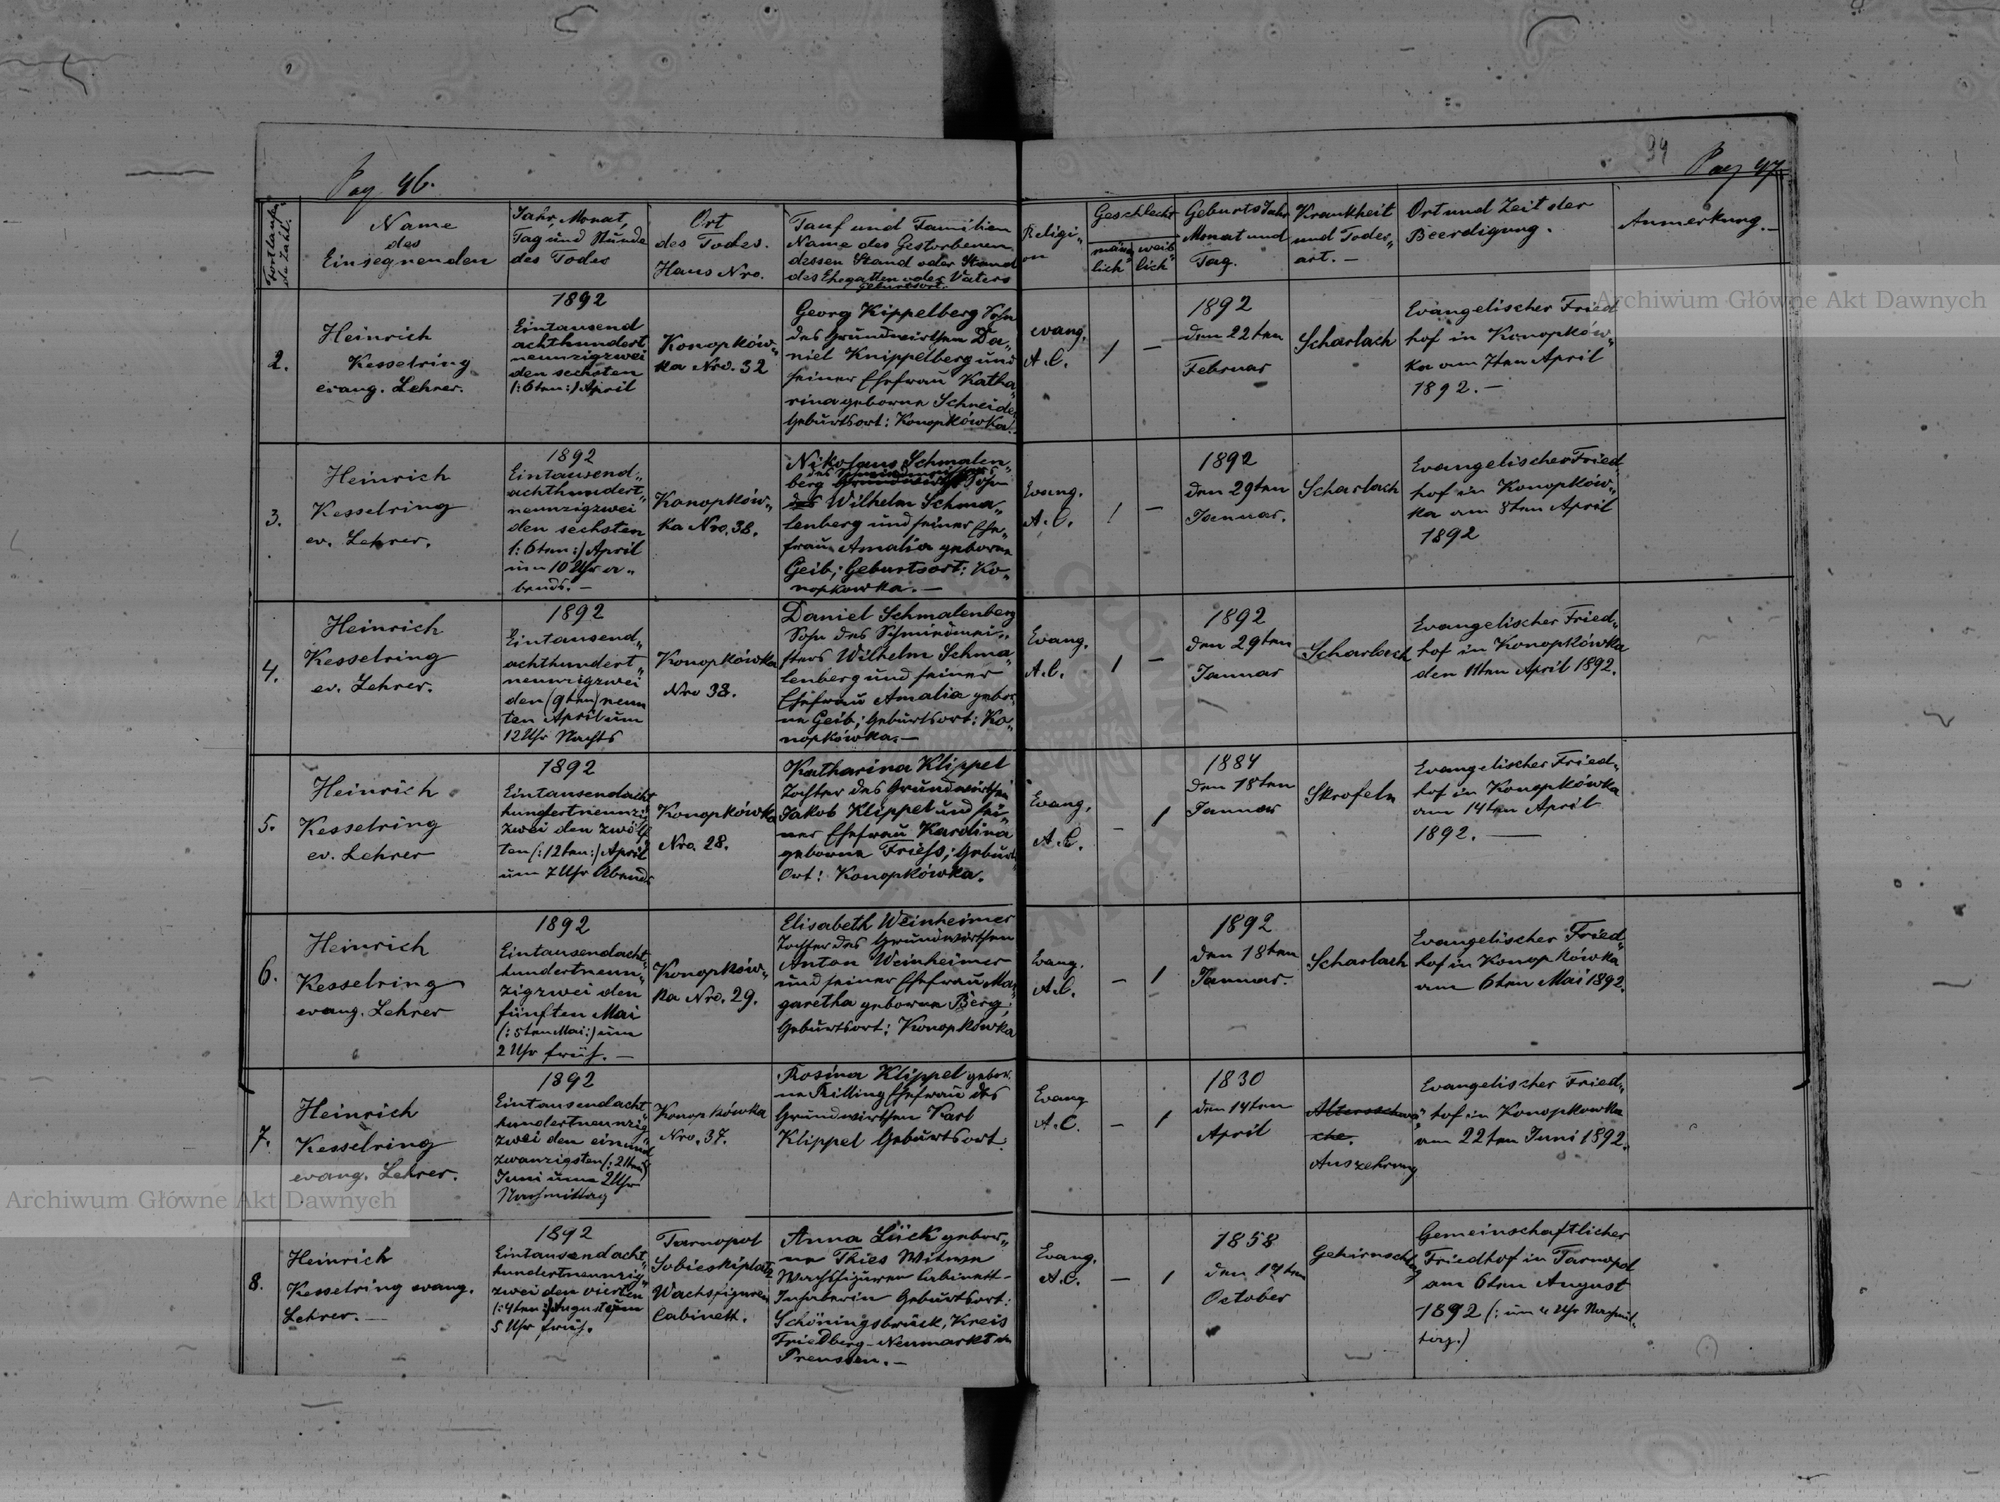 Pag 96.
94
Pag 97
Fortlaufen
de Zahl.
Name
des
Einsegnenden
Jahr, Monat,
Tag und Stunde
des Todes
Ort
des Todes.
Haus Nro.
Tauf und Familien
Name des Gestorbenen
dessen Stand oder Stand
des Ehegatten oder Vaters
Geburtsort.
Religi„
on
Geschlecht
männ
lich
weib
lich
Geburts Jahr
Monat und
Tag.
Krankheit
und Todes„
art. —
Ort und Zeit der
Beerdigung.
Anmerkung. —
2.
Heinrich
Kesselring
evang. Lehrer.
1892
Eintausend
achthundert
neunzigzwei
den sechsten
(: 6ten :) April
Konopków„
ka Nro. 32
Georg Kippelberg Sohn
des Grundwirthen Da„
niel Knippelberg und
seiner Ehefrau Katha
rina geborne Schneider
Geburtsort: Konopkówka.
evang.
A. C.
1
—
1892
den 22ten
Februar
Scharlach
Evangelischer Fried
hof in Konopków„
ka am 7ten April
1892. —
3.
Heinrich
Kesselring
ev. Lehrer.
1892
Eintausend„
achthundert„
neunzigzwei
den sechsten
(: 6ten :) April
um 10 Uhr a„
bends. —
Konopków„
ka Nro. 38.
Nikolaus Schmalen„
des Schmiedmeisters
berg Grundwirth Sohn
des Wilhelm Schma„
lenberg und seiner Ehe„
frau Amalia geborne
Geib; Geburtsort: Ko„
nopkowka. —
Evang.
A. C.
1
—
1892
den 29ten
Januar.
Scharlach
Evangelischer Fried„
hof in Konopków„
ka am 8ten April
1892
4.
Heinrich
Kesselring
ev. Lehrer.
1892
Eintausend„
achthundert„
neunzigzwei
den (9ten) neun
ten April um
12 Uhr Nachts
Konopkówka
Nro 38.
Daniel Schmalenberg
Sohn des Schmiedmei„
sters Wilhelm Schma„
lenberg und seiner
Ehefrau Amalia gebor„
ne Geib; Geburtsort: Ko„
nopkówka. —
Evang.
A. C.
1
—
1892
den 29ten
Januar
Scharlach
Evangelischer Fried„
hof in Konopkówka
den 11ten April 1892.
5.
Heinrich
Kesselring
ev. Lehrer
1892
Eintausendacht
hundertneunzig
zwei den zwölf
ten (: 12ten :) April
um 7 Uhr Abends
Konopkówka
Nro. 28.
Katharina Klippel
Tochter des Grundwirthen
Jakob Klippel und sei„
ner Ehefrau Karolina
geborne Friess; Geburts„
Ort: Konopkówka.
Evang.
A. C.
—
1
1884
den 18ten
Januar
Skrofeln
Evangelischer Fried„
hof in Konopkówka
am 14ten April
1892. —
6.
Heinrich
Kesselring
evang. Lehrer
1892
Eintausendacht„
hundertneun„
zigzwei den
fünften Mai
(: 5ten Mai :) um
2 Uhr früh. —
Konopków„
ka Nro. 29.
Elisabeth Weinheimer
Tochter des Grundwirthen
Anton Weinheimer
und seiner Ehefrau Mar„
garetha geborne Berg;
Geburtsort: Konopkówka
Evang.
A. C.
—
1
1892
den 18ten
Januar.
Scharlach
Evangelischer Fried„
hof in Konopkówka
am 6ten Mai 1892.
7.
Heinrich
Kesselring
evang. Lehrer.
1892
Eintausendacht„
hundertneunzig„
zwei den einund
zwanzigsten (: 21ten :)
Juni um 2 Uhr
Nachmittag
Konopkówka
Nro. 37.
Rosina Klippel gebor.
ne Trilling Ehefrau des
Grundwirthen Karl
Klippel Geburtsort.
Evang
A. C.
—
1
1830
den 14ten
April
Altersschwä„
che.
Auszehrung
Evangelischer Fried„
hof in Konopkowka
am 22ten Juni 1892.
8.
Heinrich
Kesselring evang.
Lehrer. —
1892
Eintausendacht„
hundertneunzig„
zwei den vierten
(: 4ten :) August um
5 Uhr früh.
Tarnopol
Sobieskiplatz
Wachsfiguren
Cabinett.
Anna Lück gebor„
ne Thies Witwe
Wachsfiguren Cabinett-
Inhaberin Geburtsort:
Schöningsbrück, Kreis
Friedberg - Neumarkt in
Preussen. —
Evang.
A. C.
—
1
1858
den 17ten
October
Gehirnschlag
Gemeinschaftlicher
Friedhof in Tarnopol
am 6ten August
1892 (: um 4 Uhr Nachmit„
tag.)
Archiwum Główne Akt Dawnych
Archiwum Główne Akt Dawnych